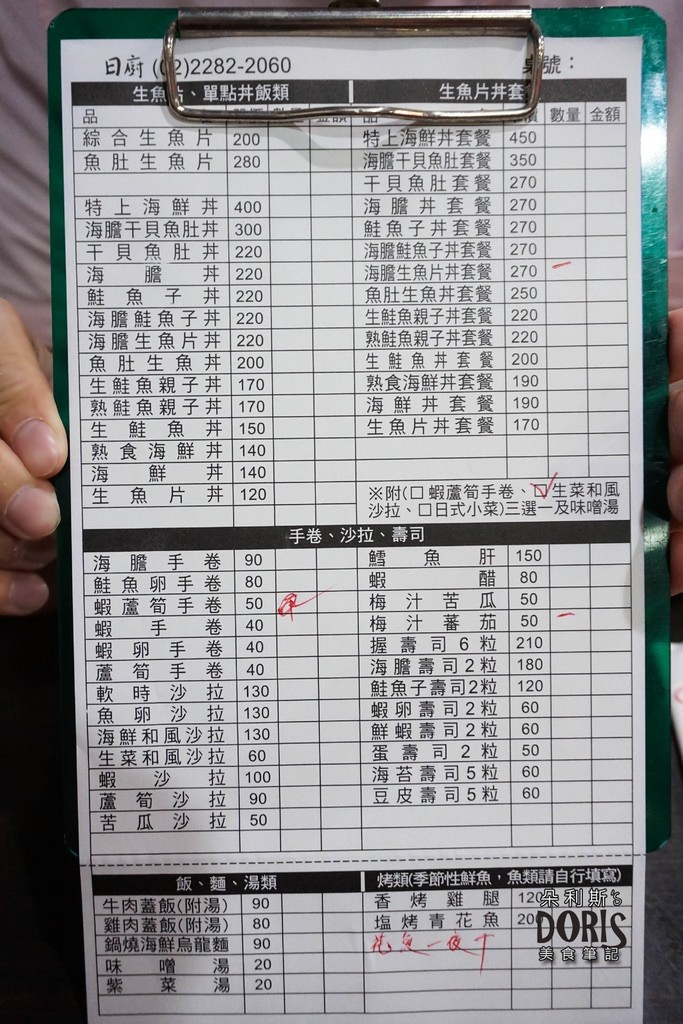 日廚 (02)2282-2060 號：
生魚片、單點丼飯類
品
綜合生魚片 200
魚肚生魚片 280
特上海鮮丼 400
海膽干貝魚肚丼 300
干貝魚肚丼 220
海膽丼 220
鮭魚子丼 220
海膽鮭魚子丼 220
海膽生魚片丼 220
魚肚生魚丼 200
生鮭魚親子丼 170
熟鮭魚親子丼 170
生鮭魚丼 150
熟食海鮮丼 140
海鮮丼 140
生魚片丼 120
生魚片丼套
數量 金額
特上海鮮丼套餐 450
海膽干貝魚肚套餐 350
干貝魚肚套餐 270
海膽丼套餐 270
鮭魚子丼套餐 270
海膽鮭魚子丼套餐 270
海膽生魚片丼套餐 270 一
魚肚生魚丼套餐 250
生鮭魚親子丼套餐 220
熟鮭魚親子丼套餐 220
生鮭魚丼套餐 200
熟食海鮮丼套餐 190
海鮮丼套餐 190
生魚片丼套餐 170
※附(□蝦蘆筍手卷、☑生菜和風
沙拉、□日式小菜)三選一及味噌湯
手卷、沙拉、壽司
海膽手卷 90
鮭魚卵手卷 80
蝦蘆筍手卷 50
蝦手卷 40
蝦卵手卷 40
蘆筍手卷 40
軟時沙拉 130
魚卵沙拉 130
海鮮和風沙拉 130
生菜和風沙拉 60
蝦沙拉 100
蘆筍沙拉 90
苦瓜沙拉 50
鱈魚肝 150
蝦醋 80
梅汁苦瓜 50
梅汁蕃茄 50 一
握壽司6粒 210
海膽壽司2粒 180
鮭魚子壽司2粒 120
蝦卵壽司2粒 60
鮮蝦壽司2粒 60
蛋壽司2粒 50
海苔壽司5粒 60
豆皮壽司5粒 60
飯、麵、湯類
牛肉蓋飯(附湯) 90
雞肉蓋飯(附湯) 80
鍋燒海鮮烏龍麵 90
味噌湯 20
紫菜湯 20
烤類(季節性鮮魚，魚類請自行填寫)
香烤雞腿 120
塩烤青花魚 200
花魚一夜干
朵利斯's
DORIS
美食筆記